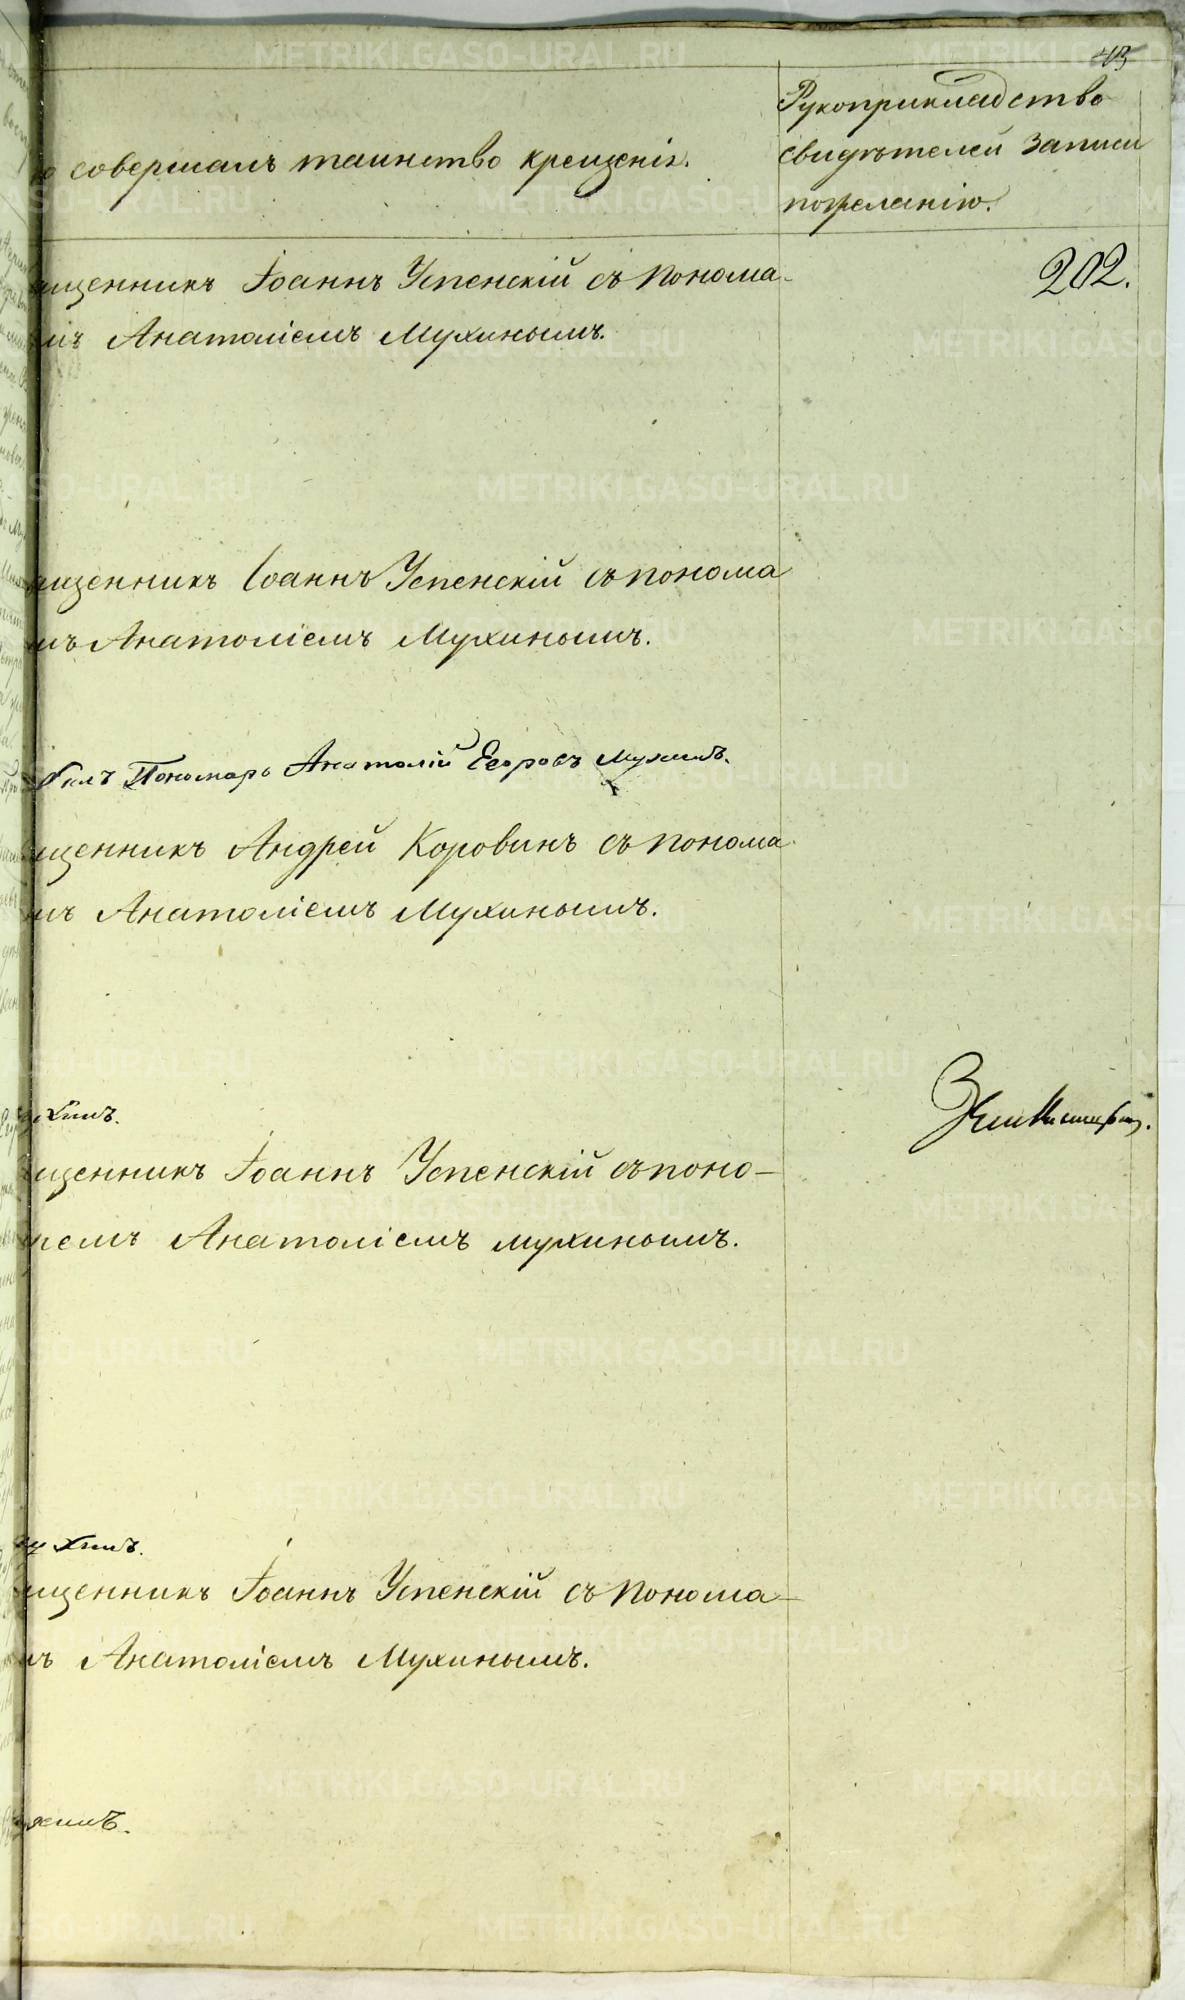 Рукоприкладство
о совершалъ таинство крещенія.
свидѣтелей записи
пожеланію.
202.
ященникъ Іоаннъ Успенскій съ понома-
мъ Анатоліемъ Мухинымъ.
ященникъ Іоаннъ Успенскій съ понома
мъ Анатоліемъ Мухинымъ.
былъ Пономарь Анатолій Егоровъ Мухинъ.
ященникъ Андрей Коровинъ съ понома-
мъ Анатоліемъ Мухинымъ.
хинъ.
ященникъ Іоаннъ Успенскій съ поно-
ремъ Анатоліемъ Мухинымъ.
ухинъ.
ященникъ Іоаннъ Успенскій съ понома-
мъ Анатоліемъ Мухинымъ.
хинъ.
METRIKI.GASO-URAL.RU